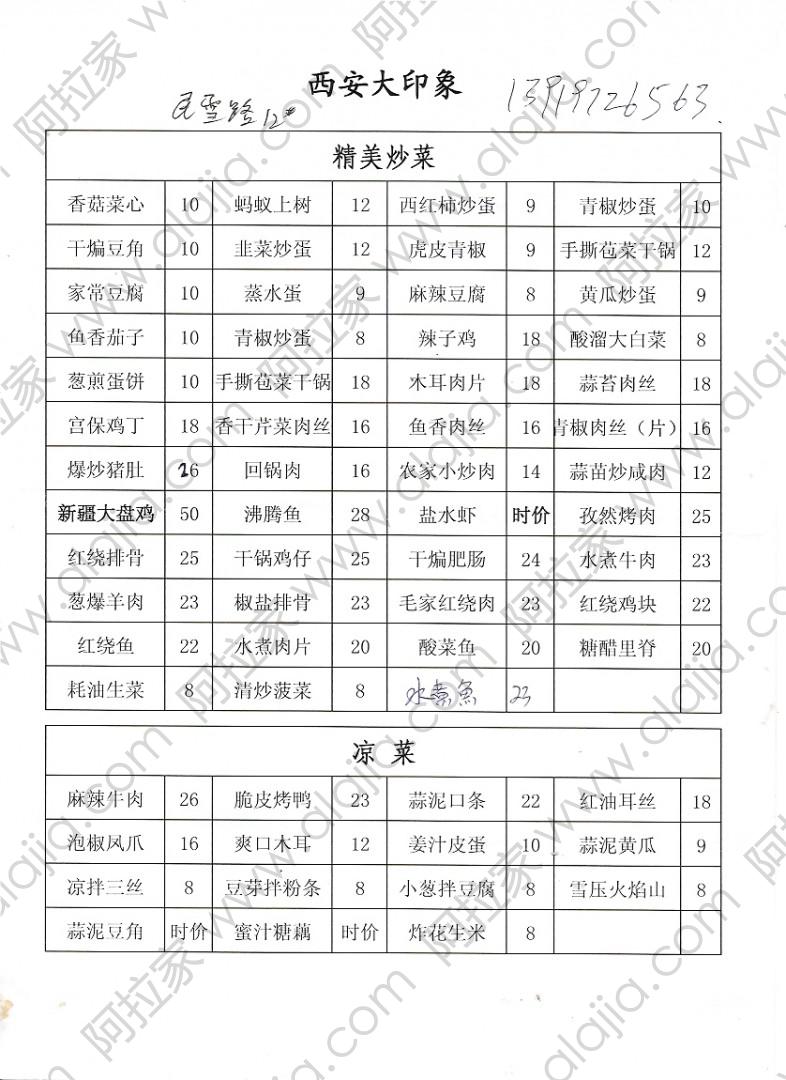 西安大印象
12# 13919726563.
精美炒菜
香菇菜心 10 蚂蚁上树 12 西红柿炒蛋 9 青椒炒蛋 10
干煸豆角 10 韭菜炒蛋 12 虎皮青椒 9 手撕苞菜干锅 12
家常豆腐 10 蒸水蛋 9 麻辣豆腐 8 黄瓜炒蛋 9
鱼香茄子 10 青椒炒蛋 8 辣子鸡 18 酸溜大白菜 8
葱煎蛋饼 10 手撕苞菜干锅 18 木耳肉片 18 蒜苔肉丝 18
宫保鸡丁 18 香干芹菜肉丝 16 鱼香肉丝 16 青椒肉丝（片） 16
爆炒猪肚 26 回锅肉 16 农家小炒肉 14 蒜苗炒咸肉 12
新疆大盘鸡 50 沸腾鱼 28 盐水虾 时价 孜然烤肉 25
红绕排骨 25 干锅鸡仔 25 干煸肥肠 24 水煮牛肉 23
葱爆羊肉 23 椒盐排骨 23 毛家红绕肉 23 红绕鸡块 22
红绕鱼 22 水煮肉片 20 酸菜鱼 20 糖醋里脊 20
耗油生菜 8 清炒菠菜 8 水煮魚 23
凉菜
麻辣牛肉 26 脆皮烤鸭 23 蒜泥口条 22 红油耳丝 18
泡椒凤爪 16 爽口木耳 12 姜汁皮蛋 10 蒜泥黄瓜 9
凉拌三丝 8 豆芽拌粉条 8 小葱拌豆腐 8 雪压火焰山 8
蒜泥豆角 时价 蜜汁糖藕 时价 炸花生米 8
阿拉家 www.alajia.com